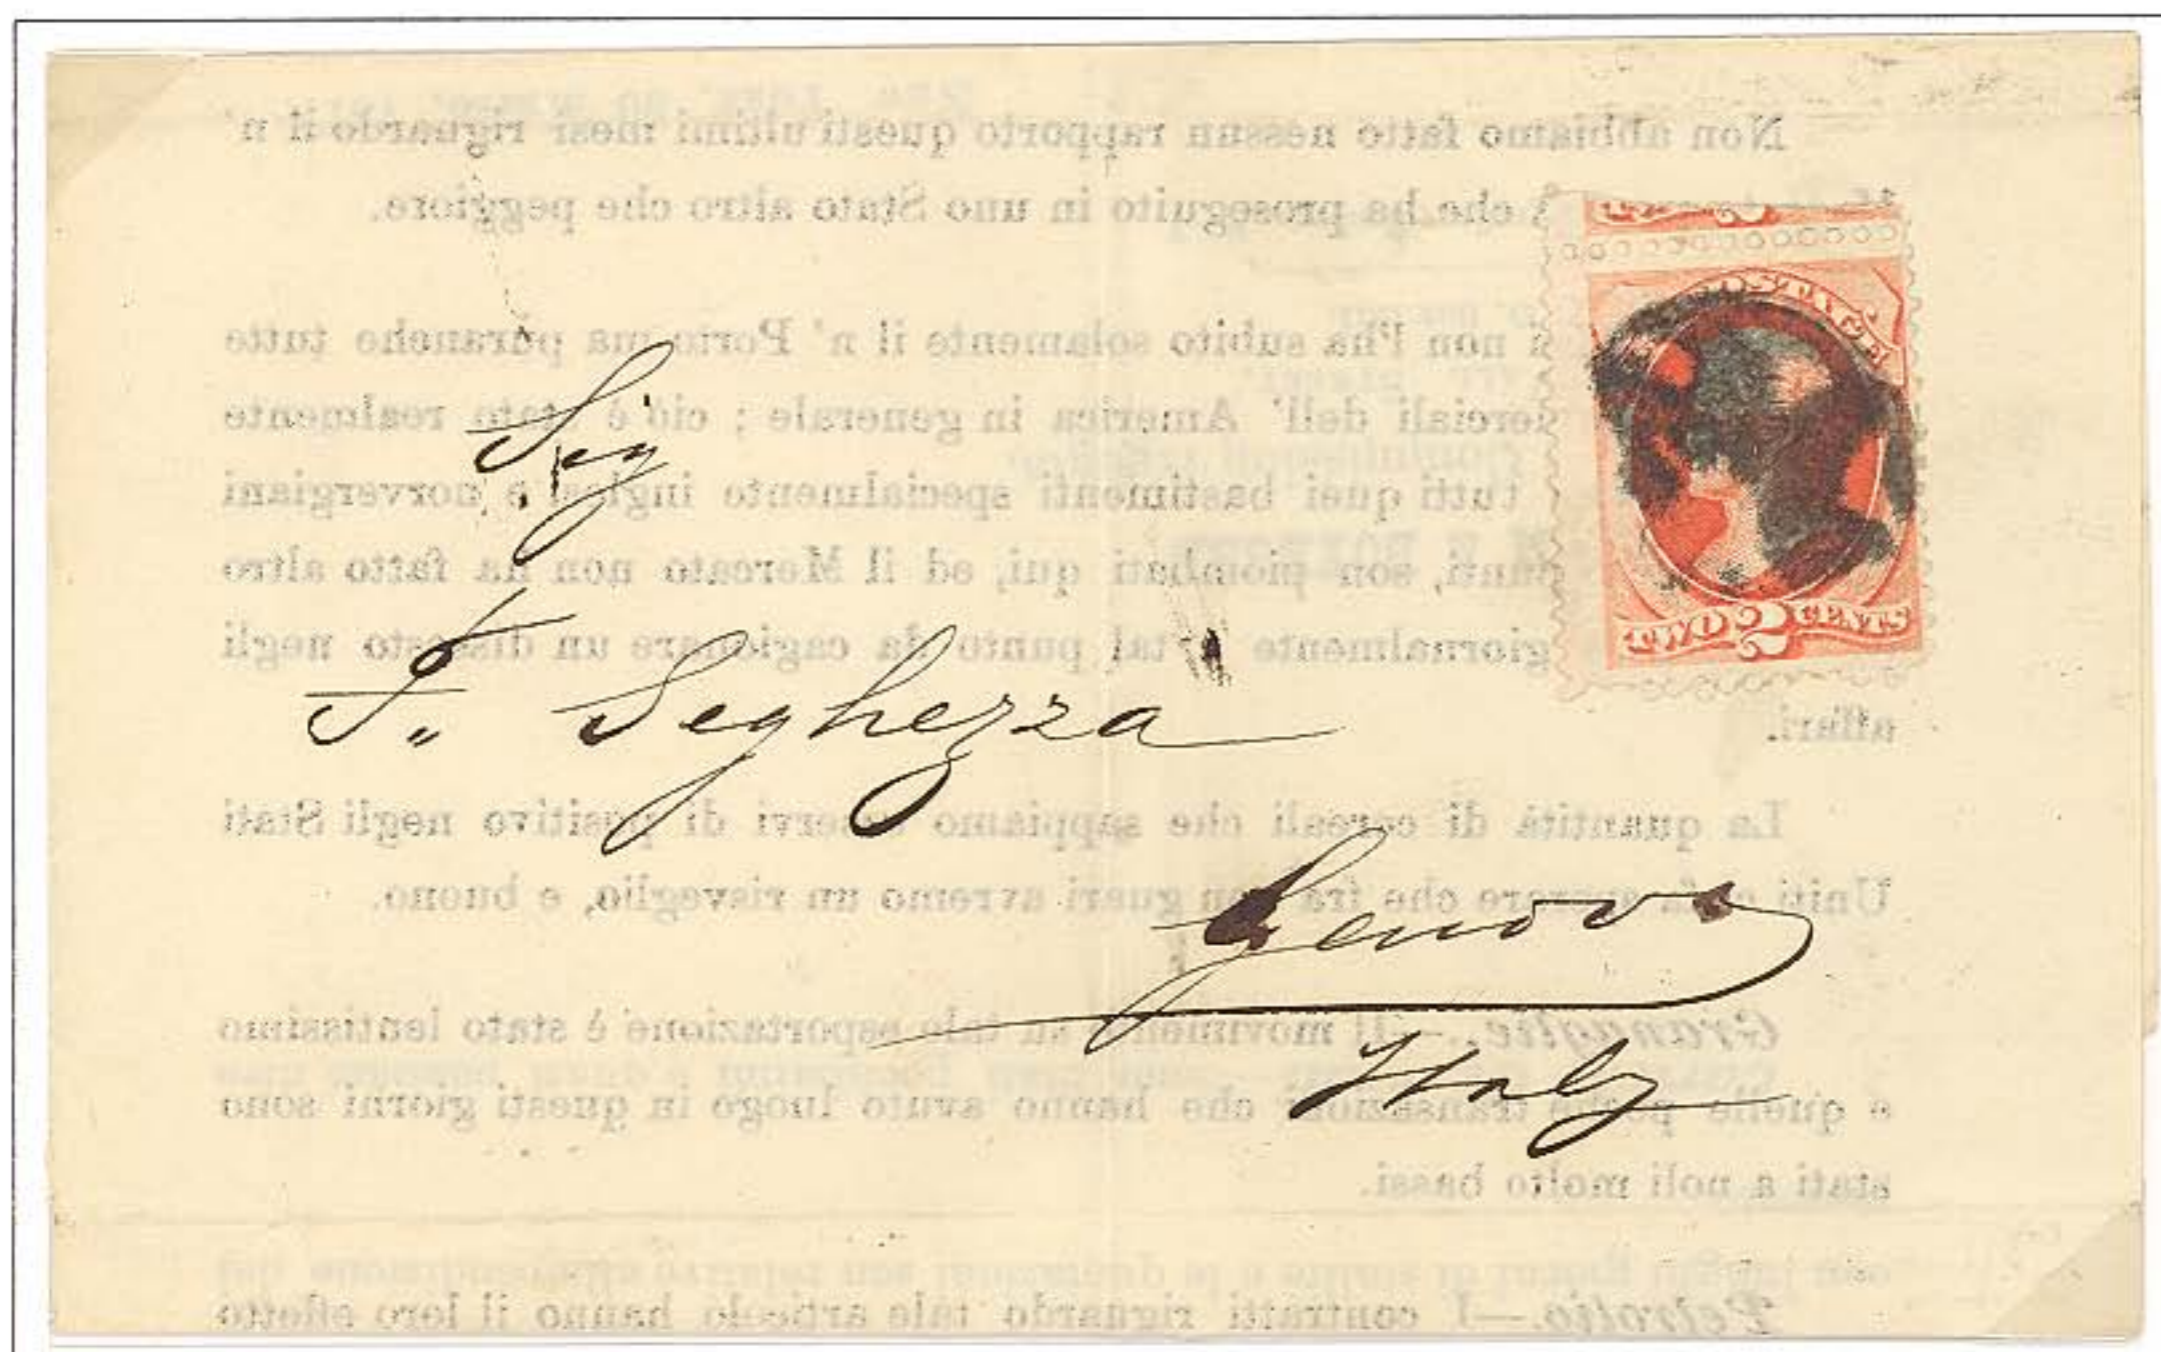 Non abbiamo fatto nessun rapporto questi ultimi mesi riguardo il n'
che ha proseguito in uno Stato altro che peggiore.
non l'ha subito solamente il n' Porto ma puranche tutte
dell' America in generale ; ciò è stato realmente
tutti quei bastimenti specialmente inglesi e norvergiani
son piombati qui, ed il Mercato non ha fatto altro
giornalmente tal punto da cagionare un dissesto negli
affari.
La quantità di cereali che sappiamo di positivo negli Stati
Uniti che fra non guari avremo un risveglio, e buono.
Granaglie.—Il movimento su tale esportazione è stato lentissimo
e quelle poche transazioni che hanno avuto luogo in questi giorni sono
stati a noli molto bassi.
Petrolio.—I contratti riguardo tale articolo hanno il loro effetto
POSTAGE
TWO 2 CENTS
Sig
F. Seghezza
Genova
Italy